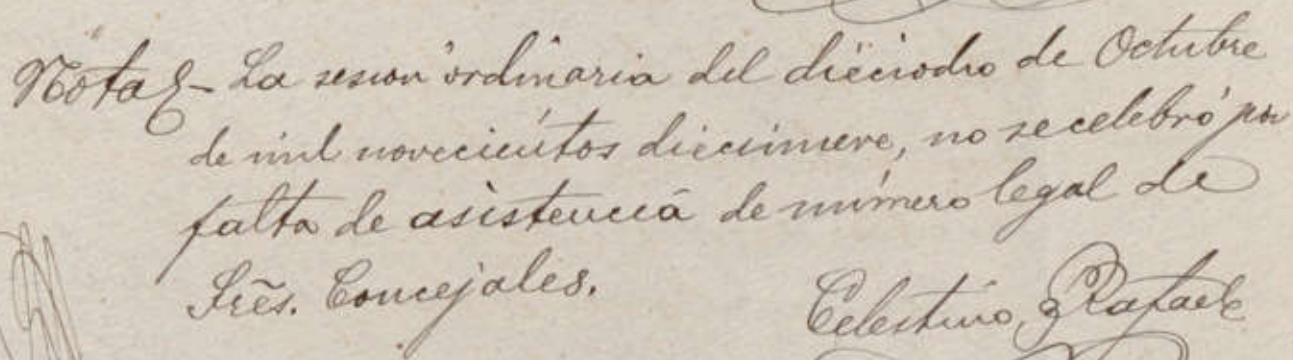 Nota - La sesion ordinaria del dieciocho de Octubre
de mil novecientos diecinueve, no se celebró por
falta de asistencia de número legal de
Sres. Concejales.
Celestino Rafael